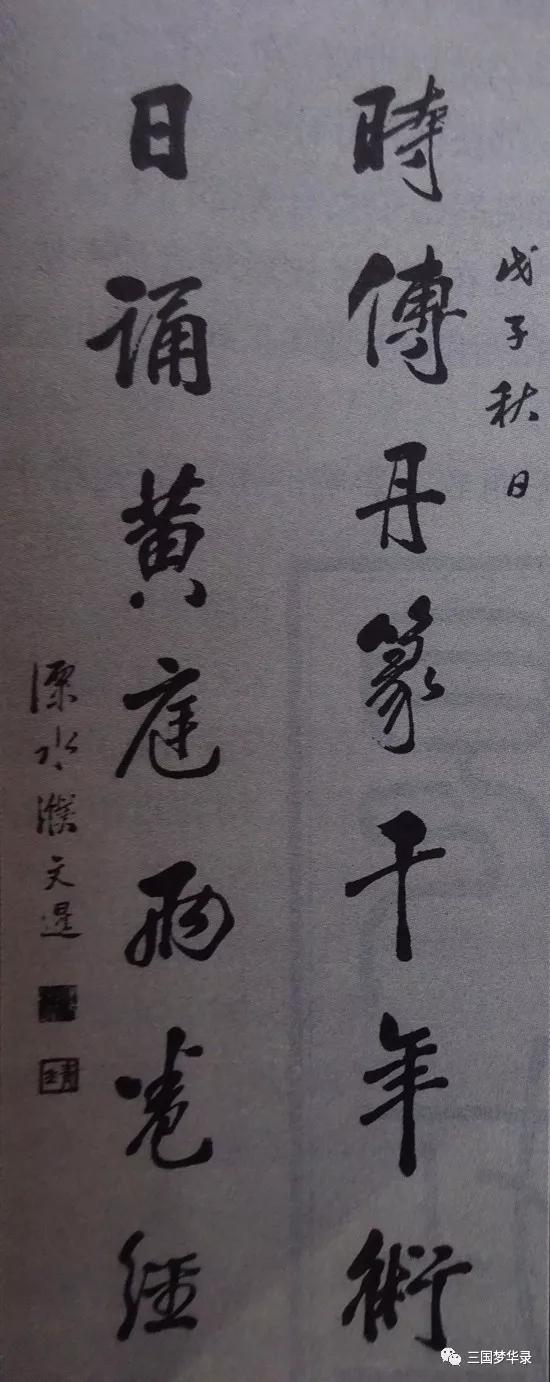 戊子秋日
時傳丹篆千年術
日誦黄庭兩卷經
溧水濮文暹
三国梦华录